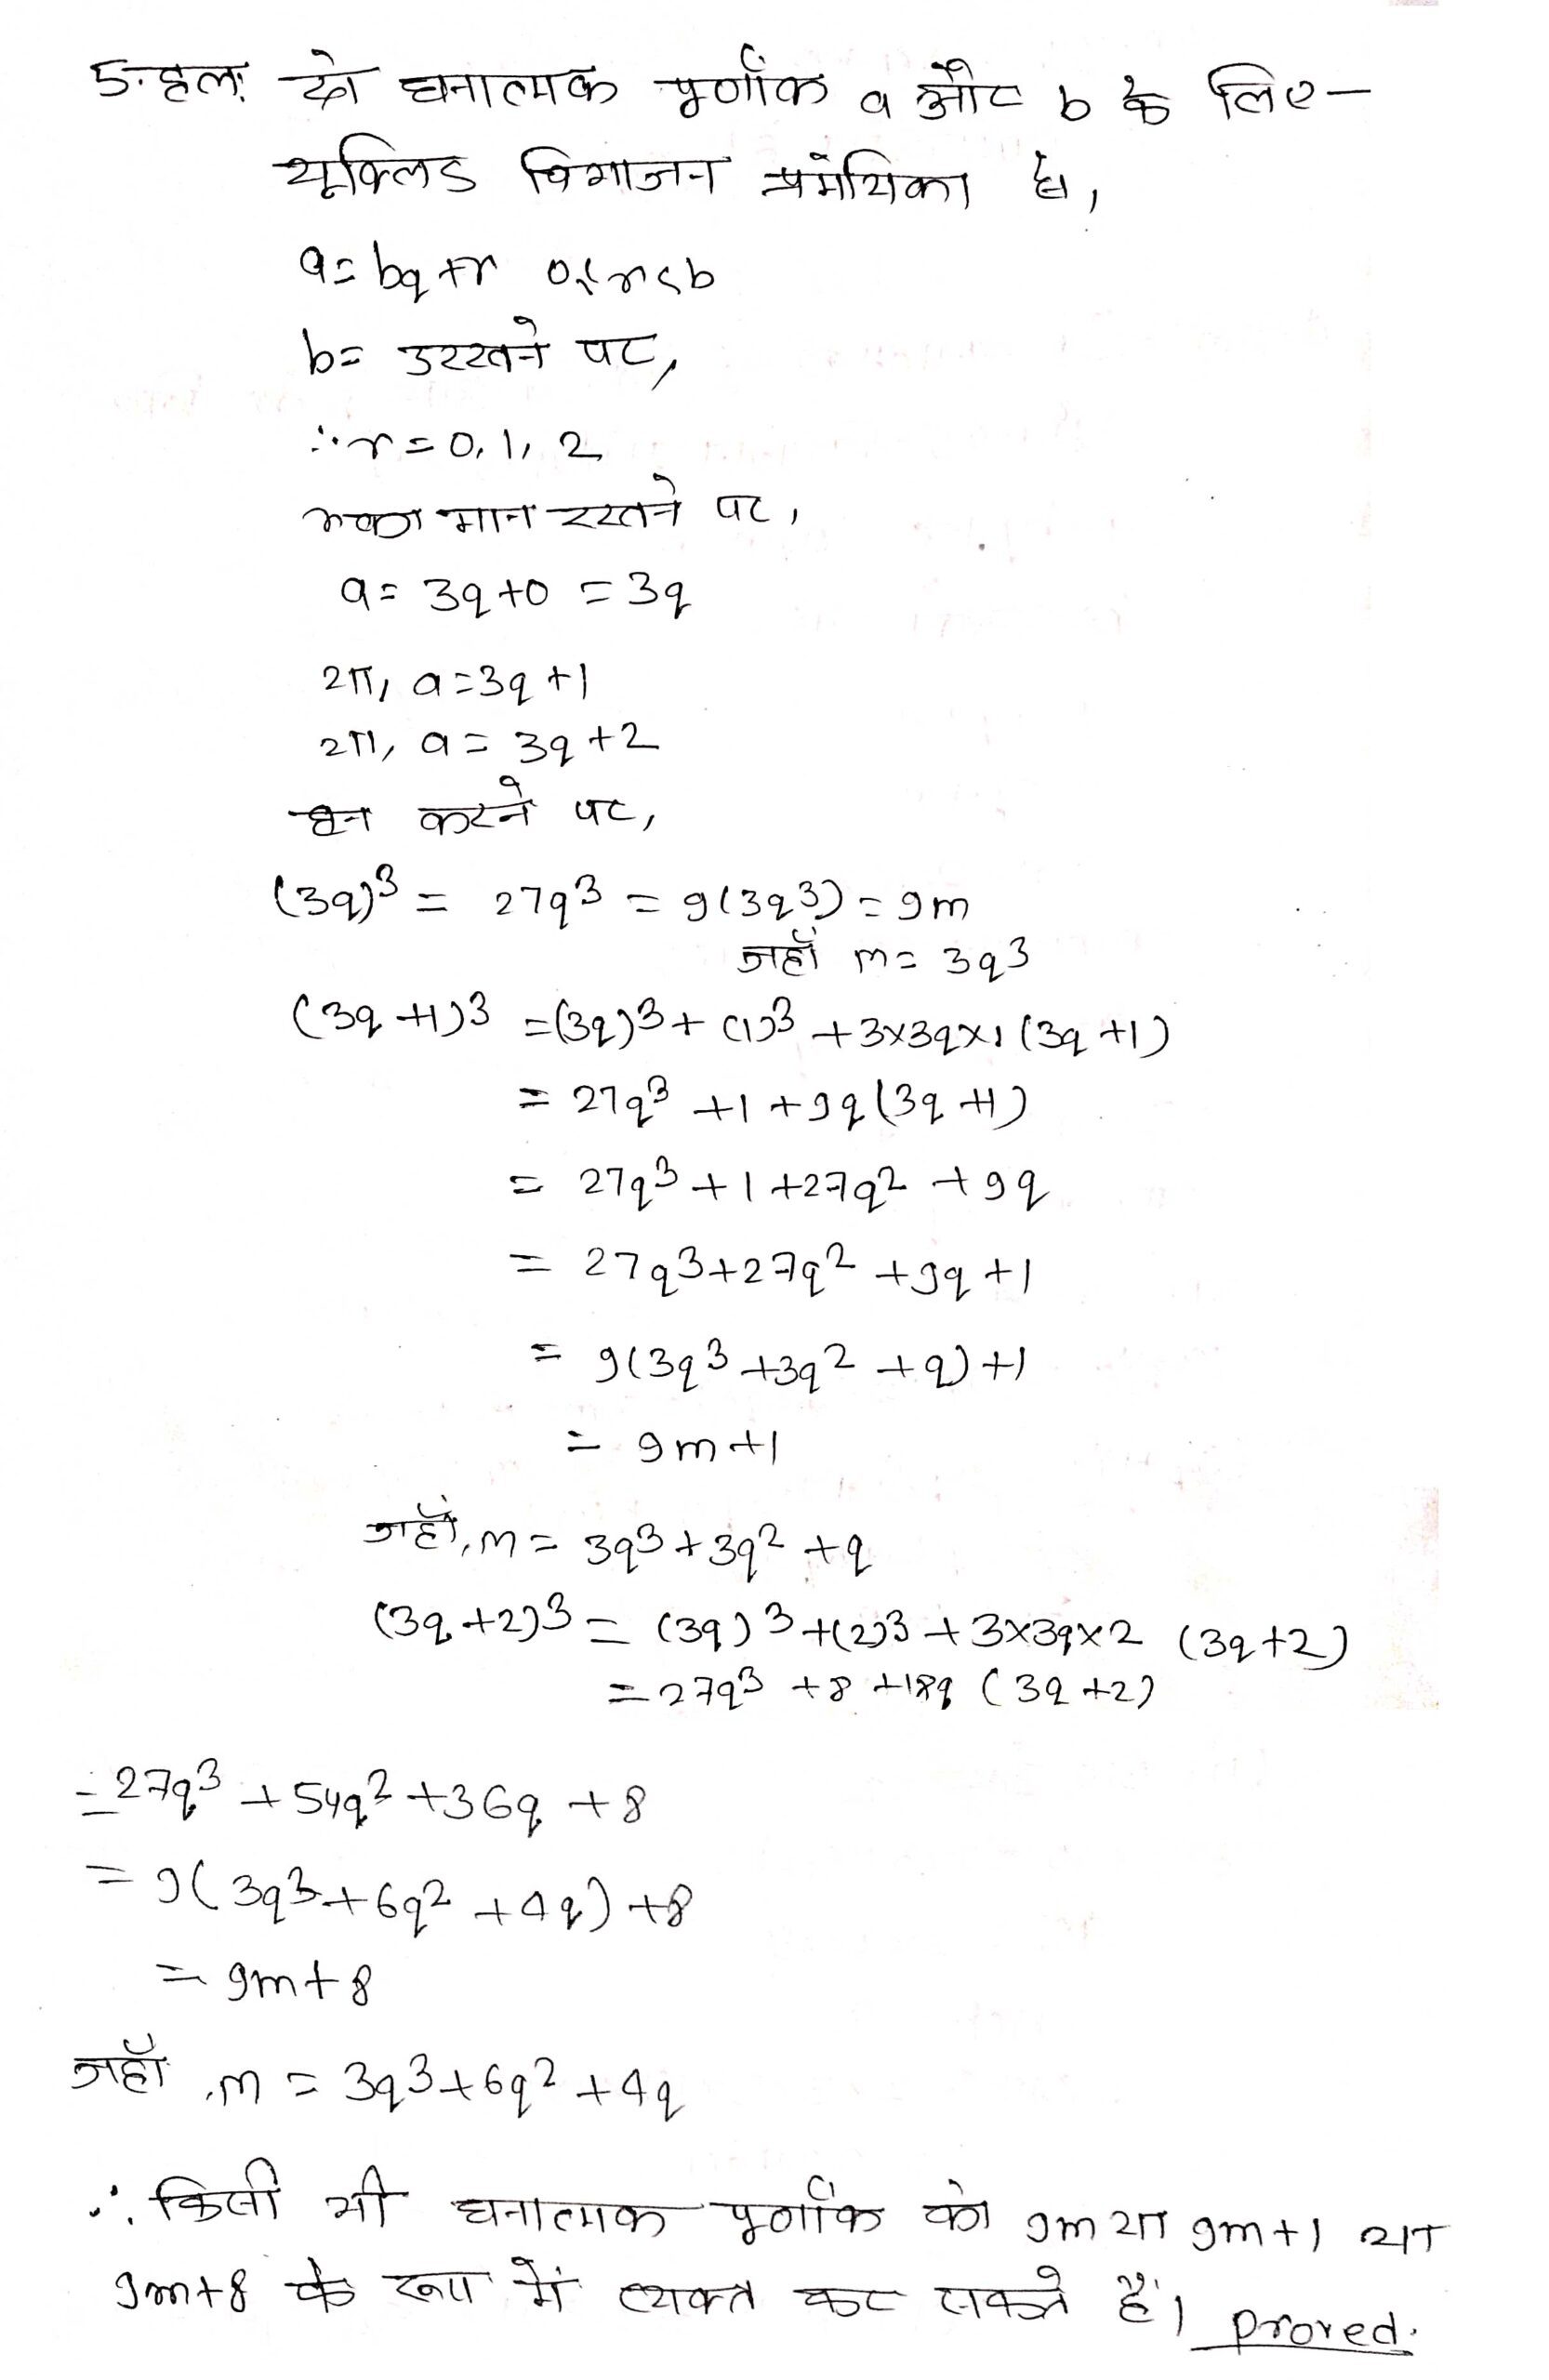 5. हल: दो धनात्मक पूर्णांक a और b के लिए-
यूक्लिड विभाजन प्रमेयिका है,
a = bq + r 0 ≤ r < b
b = 3 रखने पर,
∴ r = 0, 1, 2
r का मान रखने पर,
a = 3q + 0 = 3q
या, a = 3q + 1
या, a = 3q + 2
घन करने पर,
(3q)³ = 27q³ = 9(3q³) = 9m
जहाँ m = 3q³
(3q + 1)³ = (3q)³ + (1)³ + 3×3q×1 (3q + 1)
= 27q³ + 1 + 9q (3q + 1)
= 27q³ + 1 + 27q² + 9q
= 27q³ + 27q² + 9q + 1
= 9(3q³ + 3q² + q) + 1
= 9m + 1
जहाँ, m = 3q³ + 3q² + q
(3q + 2)³ = (3q)³ + (2)³ + 3×3q×2 (3q + 2)
= 27q³ + 8 + 18q (3q + 2)
= 27q³ + 54q² + 36q + 8
= 9(3q³ + 6q² + 4q) + 8
= 9m + 8
जहाँ, m = 3q³ + 6q² + 4q
∴ किसी भी धनात्मक पूर्णांक को 9m या 9m + 1 या
9m + 8 के रूप में व्यक्त कर सकते हैं। proved.